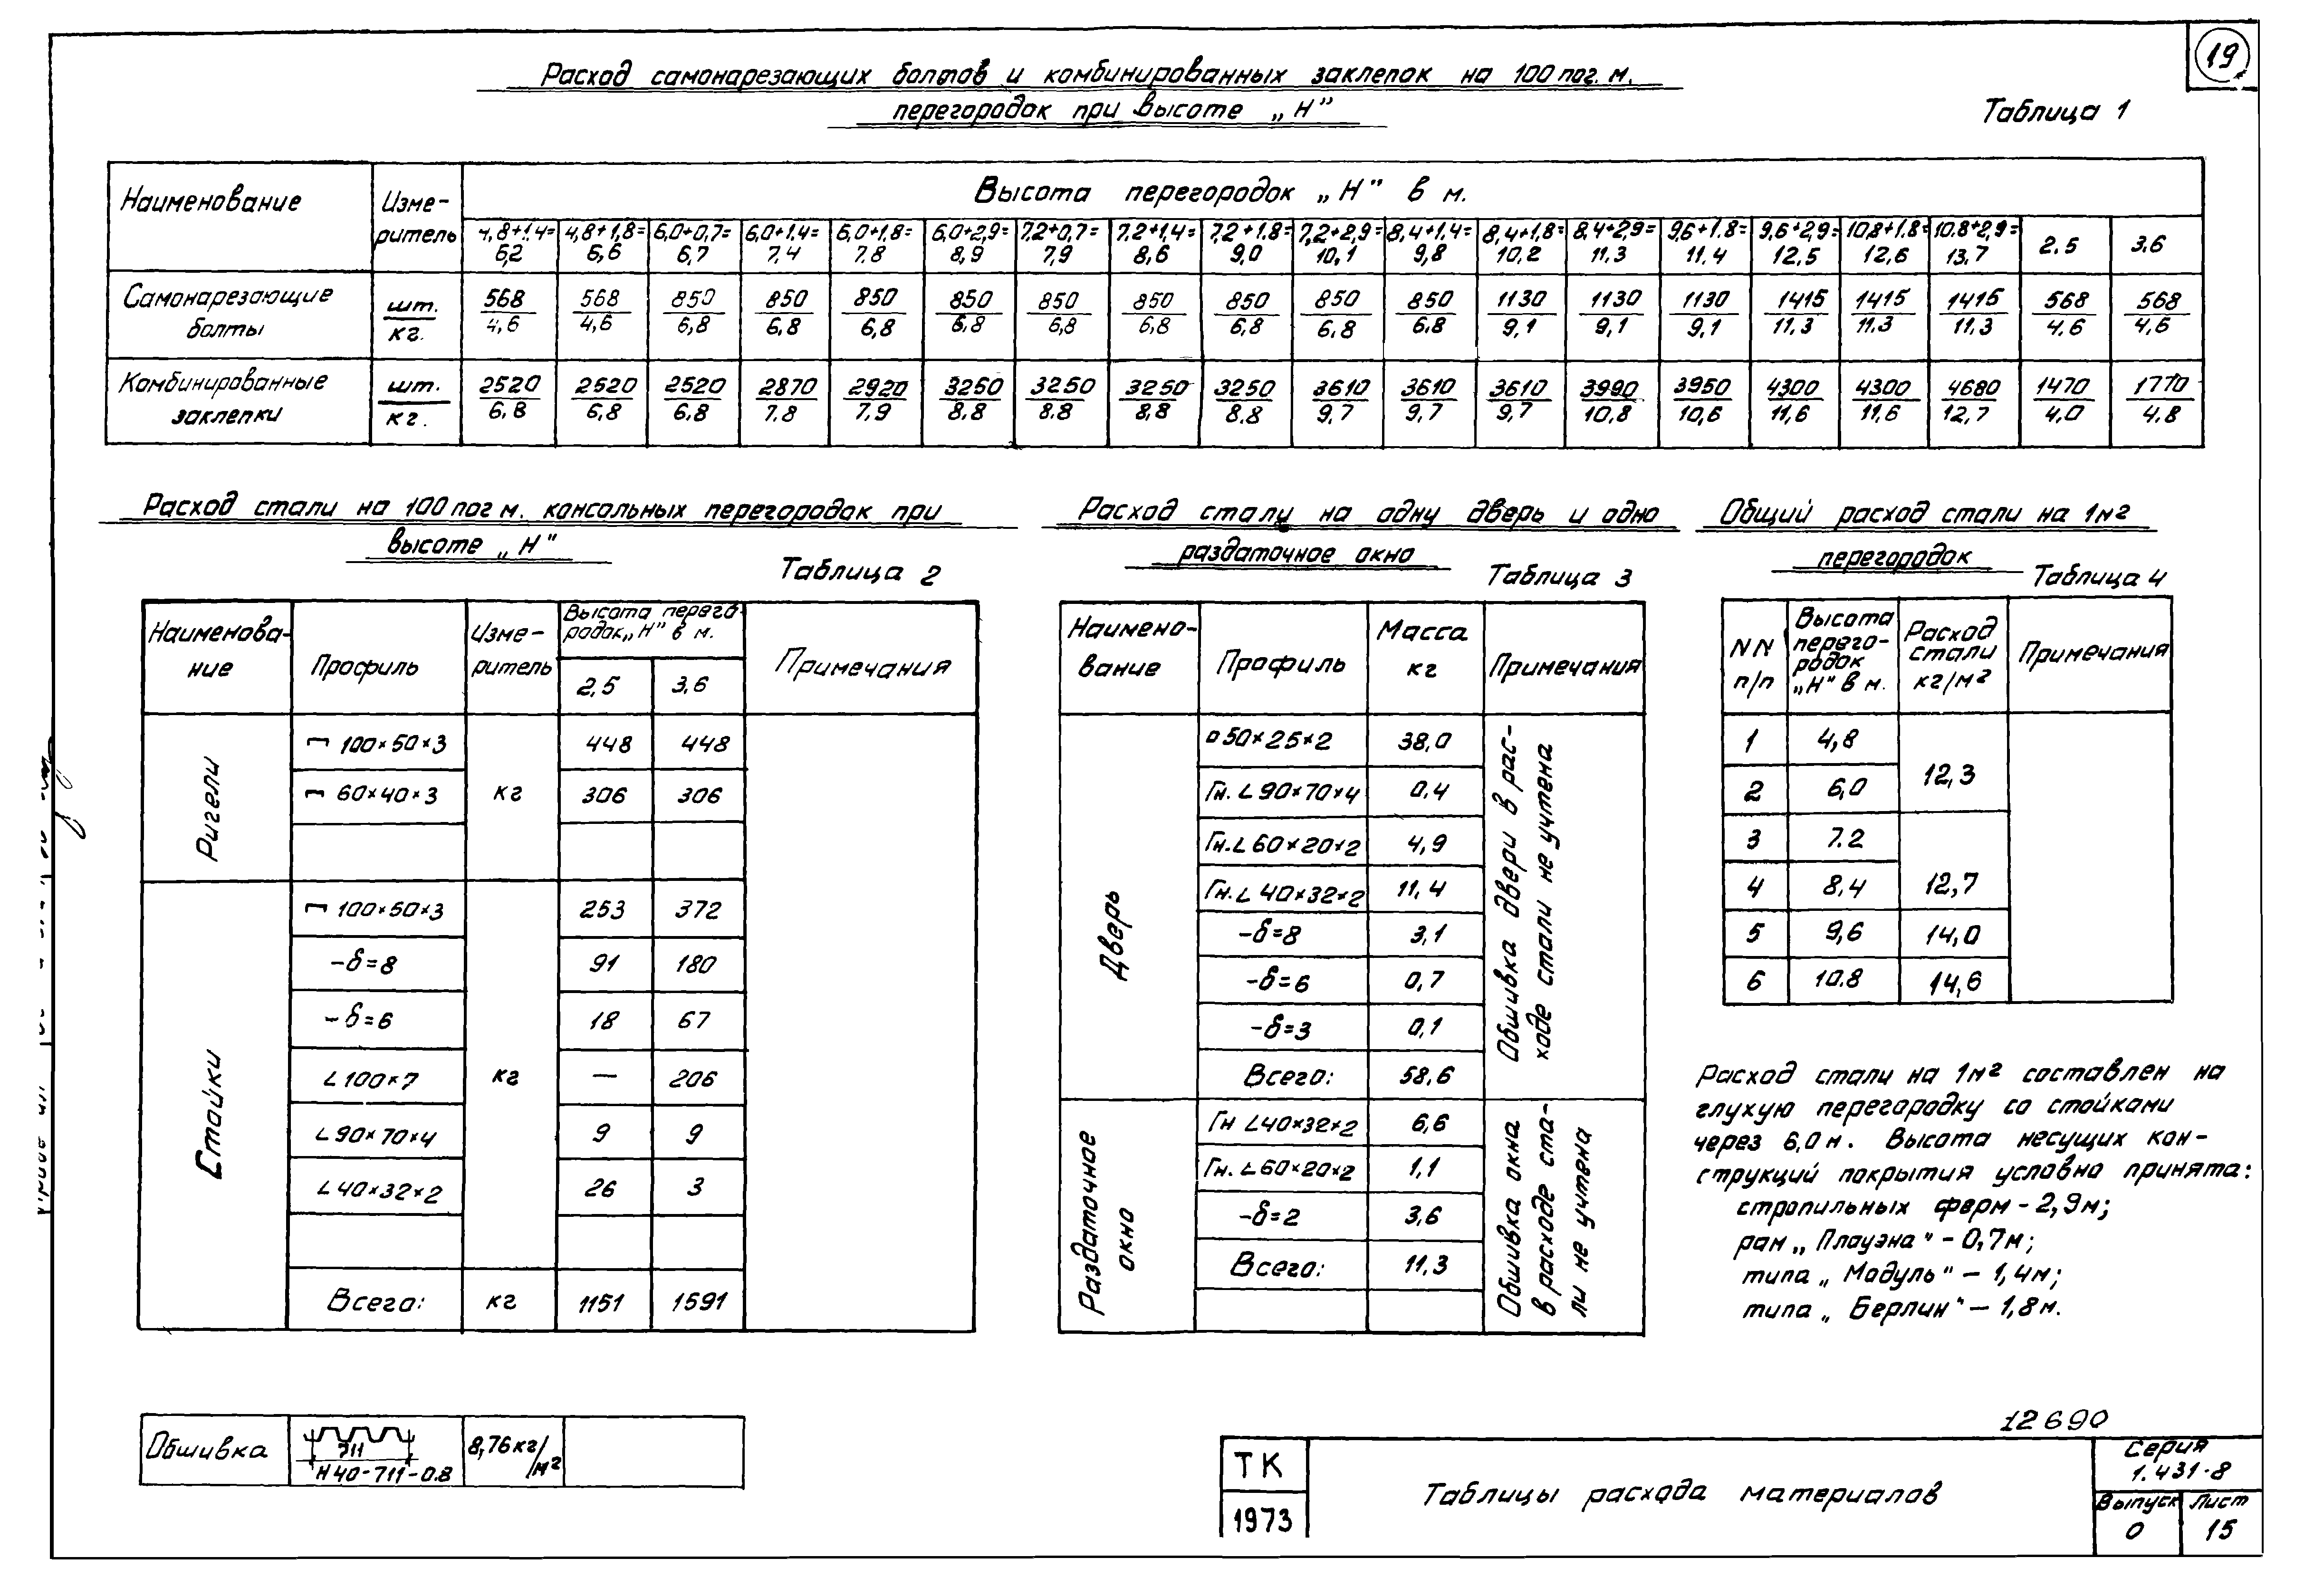 19
Расход самонарезающих болтов и комбинированных заклепок на 100 пог. м.
перегородок при высоте „Н"
Таблица 1
Наименование
Изме-
ритель
Высота перегородок „Н" в м.
4,8+1.4= 4,8+1,8= 6,0+0,7= 6,0+1,4= 6,0+1,8= 6,0+2,9= 7,2+0,7= 7.2+1,4= 7,2+1.8= 7,2+2,9= 8,4+1.4= 8,4+1,8= 8,4+2,9= 9,6+1.8= 9,6+2,9= 10,8+1.8= 10.8+2,9=
6,2 6,6 6,7 7,4 7.8 8,9 7,9 8,6 9,0 10,1 9,8 10,2 11,3 11,4 12,5 12,6 13,7 2.5 3.6
Самонарезающие
болты
шт. 568 568 850 850 850 850 850 850 850 850 850 1130 1130 1130 1415 1415 1415 568 568
кг. 4,6 4,6 6,8 6,8 6,8 6,8 6,8 6,8 6,8 6.8 6.8 9,1 9,1 9,1 11,3 11.3 11.3 4.6 4,6
Комбинированные
заклепки
шт. 2520 2520 2520 2870 2920 3250 3250 3250 3250 3610 3610 3610 3990 3950 4300 4300 4680 1470 1770
кг. 6,8 6,8 6,8 7.8 7,9 8.8 8.8 8,8 8.8 9,7 9,7 9,7 10,8 10,6 11,6 11,6 12,7 4.0 4.8
Расход стали на 100 пог м. консольных перегородок при
высоте „Н"
Таблица 2
Наименова-
ние
Профиль
Изме-
ритель
Высота перего-
родок „Н" в м.
2,5 3,6
Примечания
Ригели
100×50×3 448 448
60×40×3 кг 306 306
Стойки
100×50×3 253 372
-δ=8 91 180
-δ=6 18 67
L 100×7 кг — 206
L 90×70×4 9 9
L 40×32×2 26 3
Всего: кг 1151 1591
Обшивка
711
Н40-711-0.8
8,76 кг/м²
Расход стали на одну дверь и одно
раздаточное окно
Таблица 3
Наимено-
вание
Профиль
Масса
кг
Примечания
Дверь
□ 50×25×2 38,0
Гн. L 90×70×4 0,4
Гн. L 60×20×2 4,9
Гн. L 40×32×2 11,4
-δ=8 3,1
-δ=6 0,7
-δ=3 0,1
Всего: 58,6
Обшивка двери в рас-
ходе стали не учтена
Раздаточное
окно
Гн L40×32×2 6,6
Гн. L60×20×2 1,1
-δ=2 3,6
Всего: 11,3
Обшивка окна
в расходе ста-
ли не учтена
Общий расход стали на 1м²
перегородок
Таблица 4
NN
п/п
Высота
перего-
родок
„Н" в м.
Расход
стали
кг/м²
Примечания
1 4,8
12,3
2 6,0
3 7.2
4 8,4 12,7
5 9,6 14,0
6 10.8 14,6
Расход стали на 1м² составлен на
глухую перегородку со стойками
через 6,0м. Высота несущих кон-
струкций покрытия условно принята:
стропильных ферм - 2,9м;
рам „Плауэна" - 0,7м;
типа „Модуль" - 1,4м;
типа „Берлин" - 1,8м.
12690
ТК
1973
Таблицы расхода материалов
Серия
1.431-8
Выпуск Лист
0 15